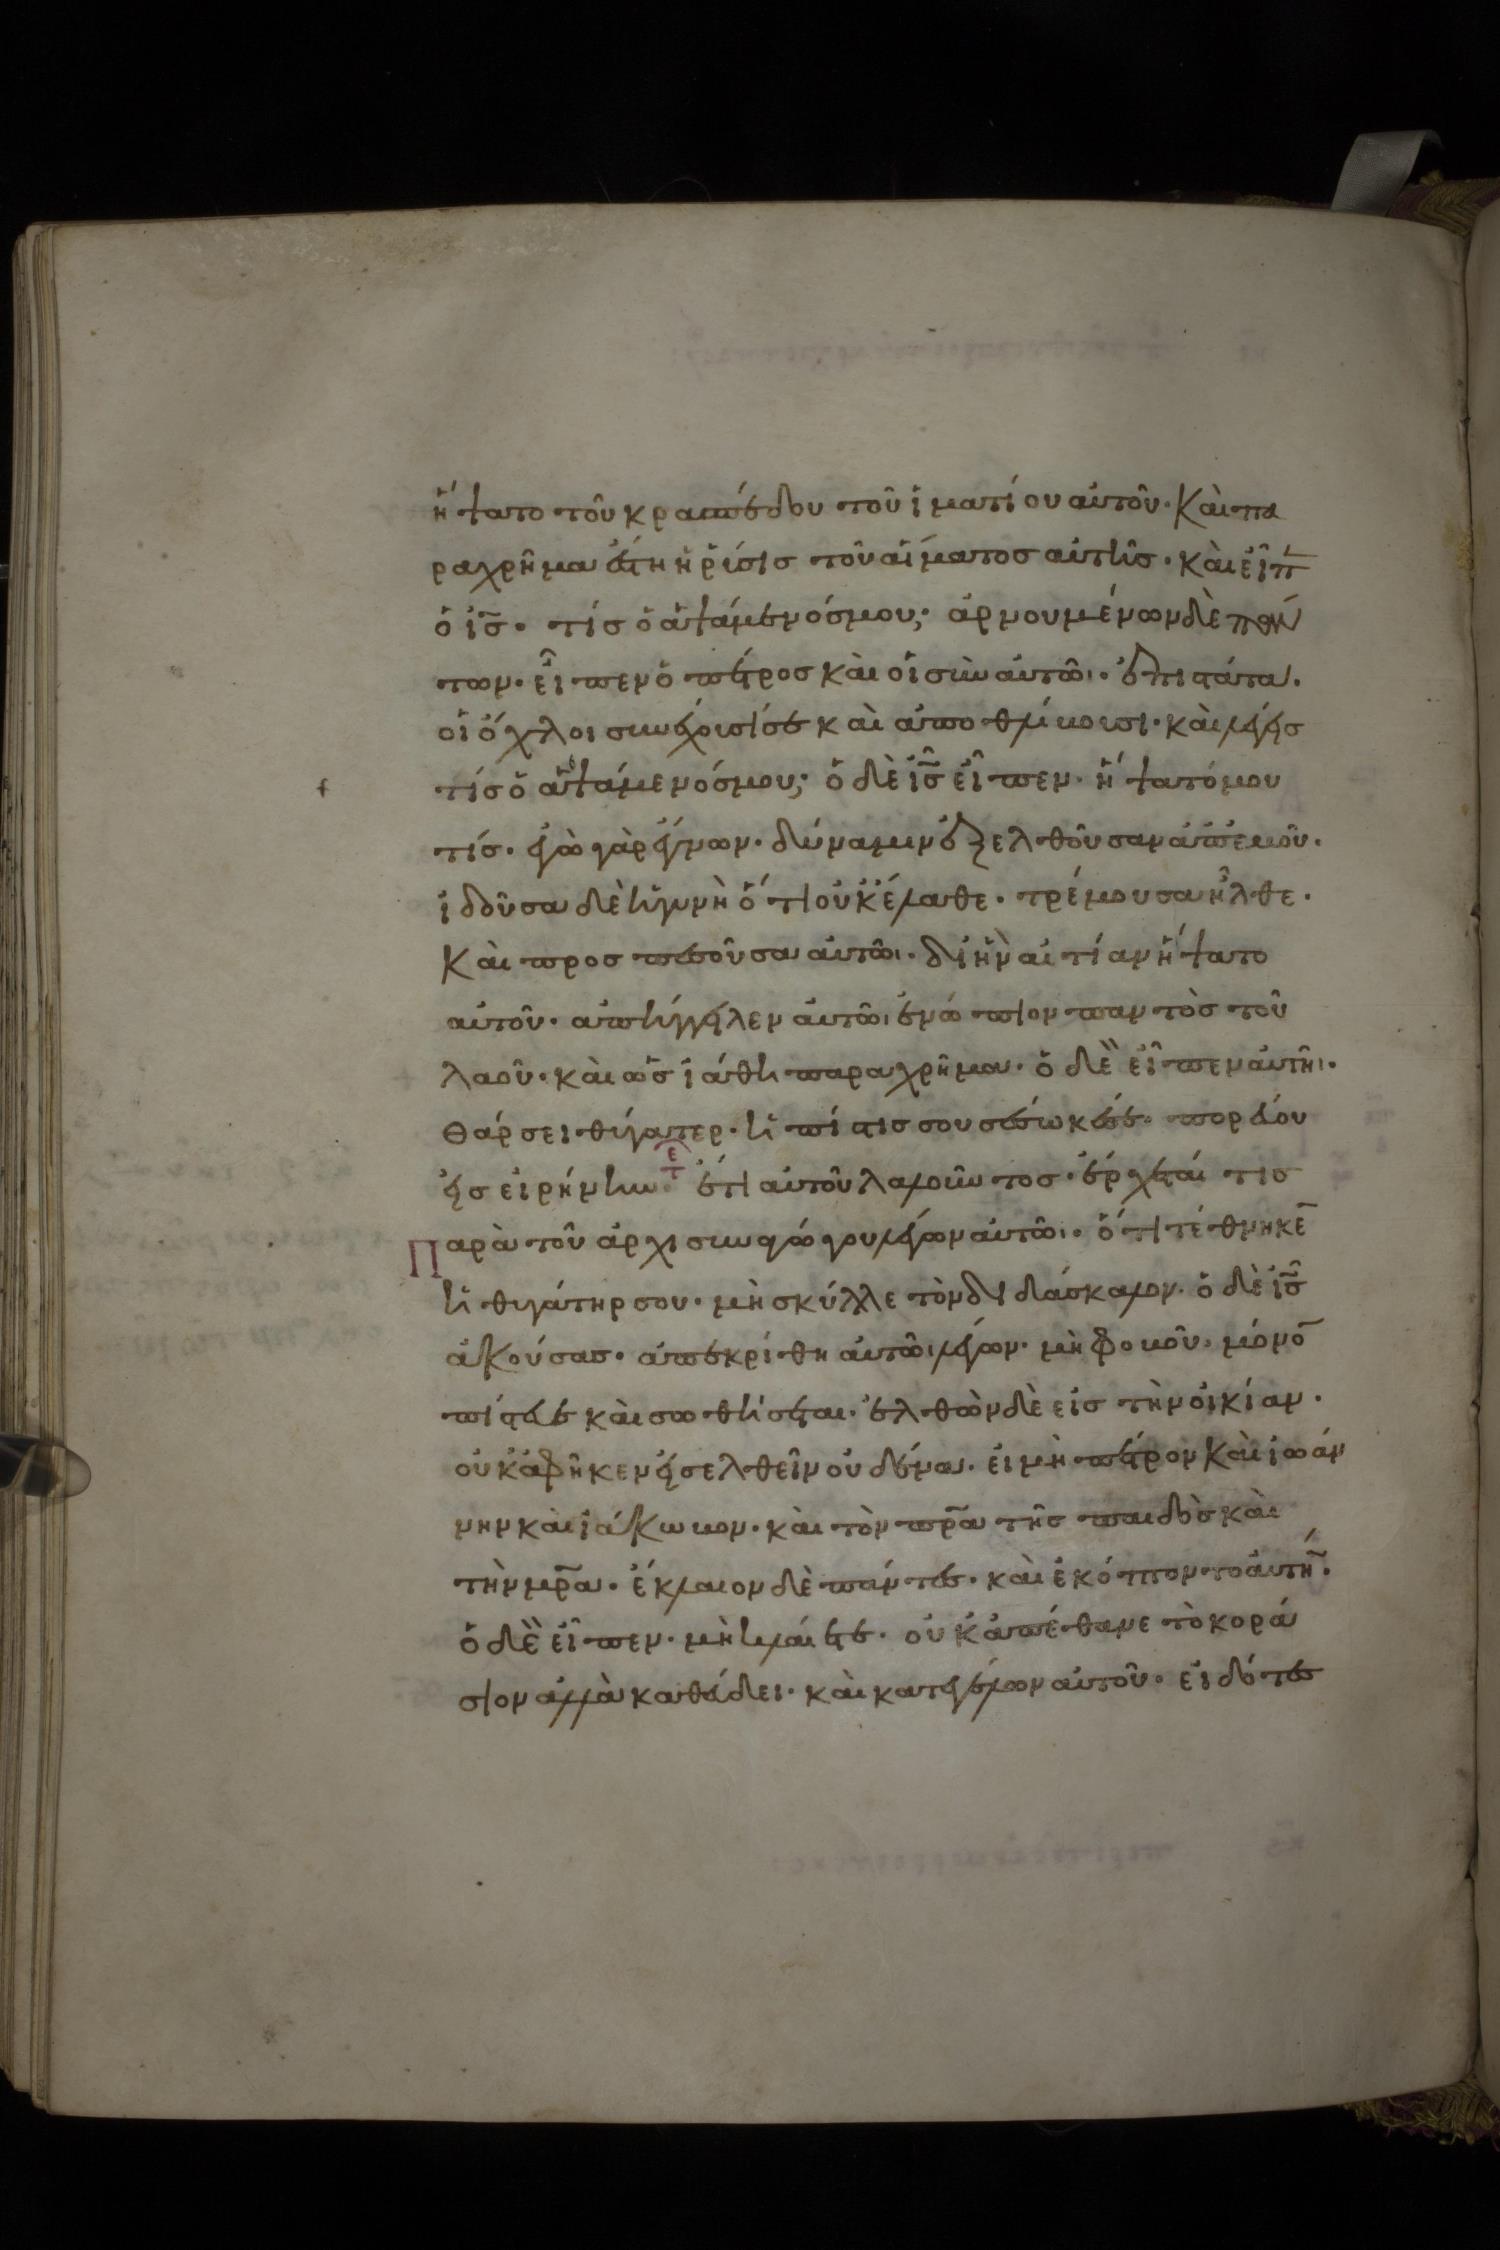 ἥψατο τοῦ κρασπέδου τοῦ ἱματίου αὐτοῦ· Καὶ πα
ραχρῆμα ἔστη ἡ ῥύσις τοῦ αἵματος αὐτῆς· καὶ εἶπ
ὁ ἰ̅ς̅· τίς ὁ ἁψάμενός μου; ἀρνουμένων δὲ πάν
των· εἶπεν ὁ πέτρος καὶ οἱ σὺν αὐτῶι· ἐπιστάτα·
οἱ ὄχλοι συνέχουσί σε καὶ ἀποθλίβουσι· καὶ λέγεις
τίς ὁ ἁψάμενός μου; ὁ δὲ ἰ̅ς̅ εἶπεν· ἥψατό μου
τίς· ἐγὼ γὰρ ἔγνων· δύναμιν ἐξελθοῦσαν ἀπ' ἐμοῦ·
ἰδοῦσα δὲ ἡ γυνὴ ὅτι οὐκ ἔλαθε· τρέμουσα ἦλθε·
Καὶ προσπεσοῦσα αὐτῶι· δι' ἣν αἰτίαν ἥψατο
αὐτοῦ· ἀπήγγειλεν αὐτῶι ἐνώπιον παντὸς τοῦ
λαοῦ· καὶ ὡς ἰάθη παραχρῆμα· ὁ δὲ εἶπεν αὐτῆι·
Θάρσει θύγατερ· ἡ πίστις σου σέσωκέ σε· πορεύου
εἰς εἰρήνην· ἔτι αὐτοῦ λαλοῦντος· ἔρχεταί τις
Παρὰ τοῦ ἀρχισυναγώγου λέγων αὐτῶι· ὅτι τέθνηκε̅
ἡ θυγάτηρ σου· μὴ σκύλλε τὸν διδάσκαλον· ὁ δὲ ἰ̅ς̅
ἀκούσας· ἀπεκρίθη αὐτῶι λέγων· μὴ φοβοῦ· μόνο̅
πίστευε καὶ σωθήσεται· ἐλθὼν δὲ εἰς τὴν οἰκίαν·
οὐκ ἀφῆκεν εἰσελθεῖν οὐδένα· εἰ μὴ πέτρον Καὶ ἰωάν
νην καὶ ἰάκωβον· καὶ τὸν π̅ρ̅α̅ τῆς παιδὸς καὶ
τὴν μ̅ρ̅α̅· ἔκλαιον δὲ πάντες· καὶ ἐκόπτοντο αὐτή̅·
ὁ δὲ εἶπεν· μὴ κλαίετε· οὐκ ἀπέθανε τὸ κορά
σιον ἀλλὰ καθεύδει· καὶ κατεγέλων αὐτοῦ· εἰδότες